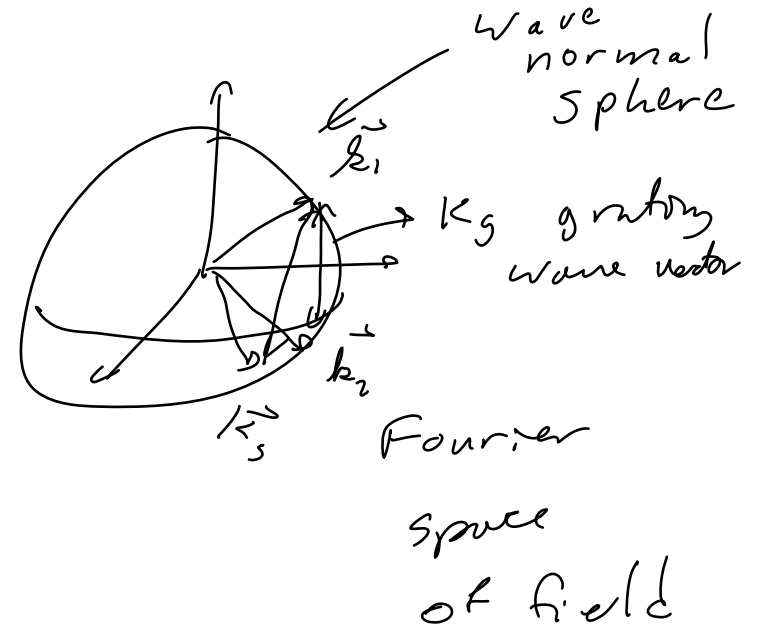 wave
normal
sphere
k⃗₁
Kg grating
wave vector
k⃗₂
K⃗s
Fourier
space
of field